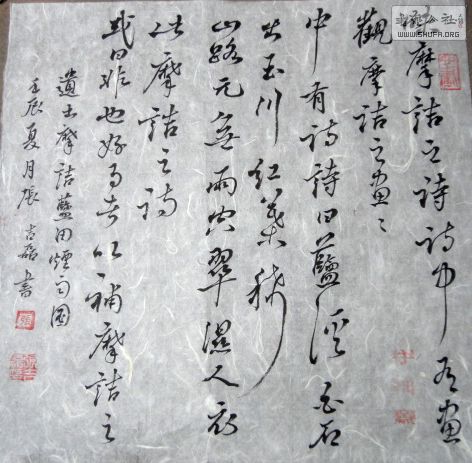 摩詰之詩詩中有畫
觀摩詰之畫々
中有詩詩曰藍溪白石
出玉川紅葉稀
山路元無雨空翠濕人衣
此摩詰之詩
或曰非也好事者以補摩詰之
遺書摩詰藍田煙雨圖
壬辰夏月張吉書
公社
WWW.SHUFA.ORG